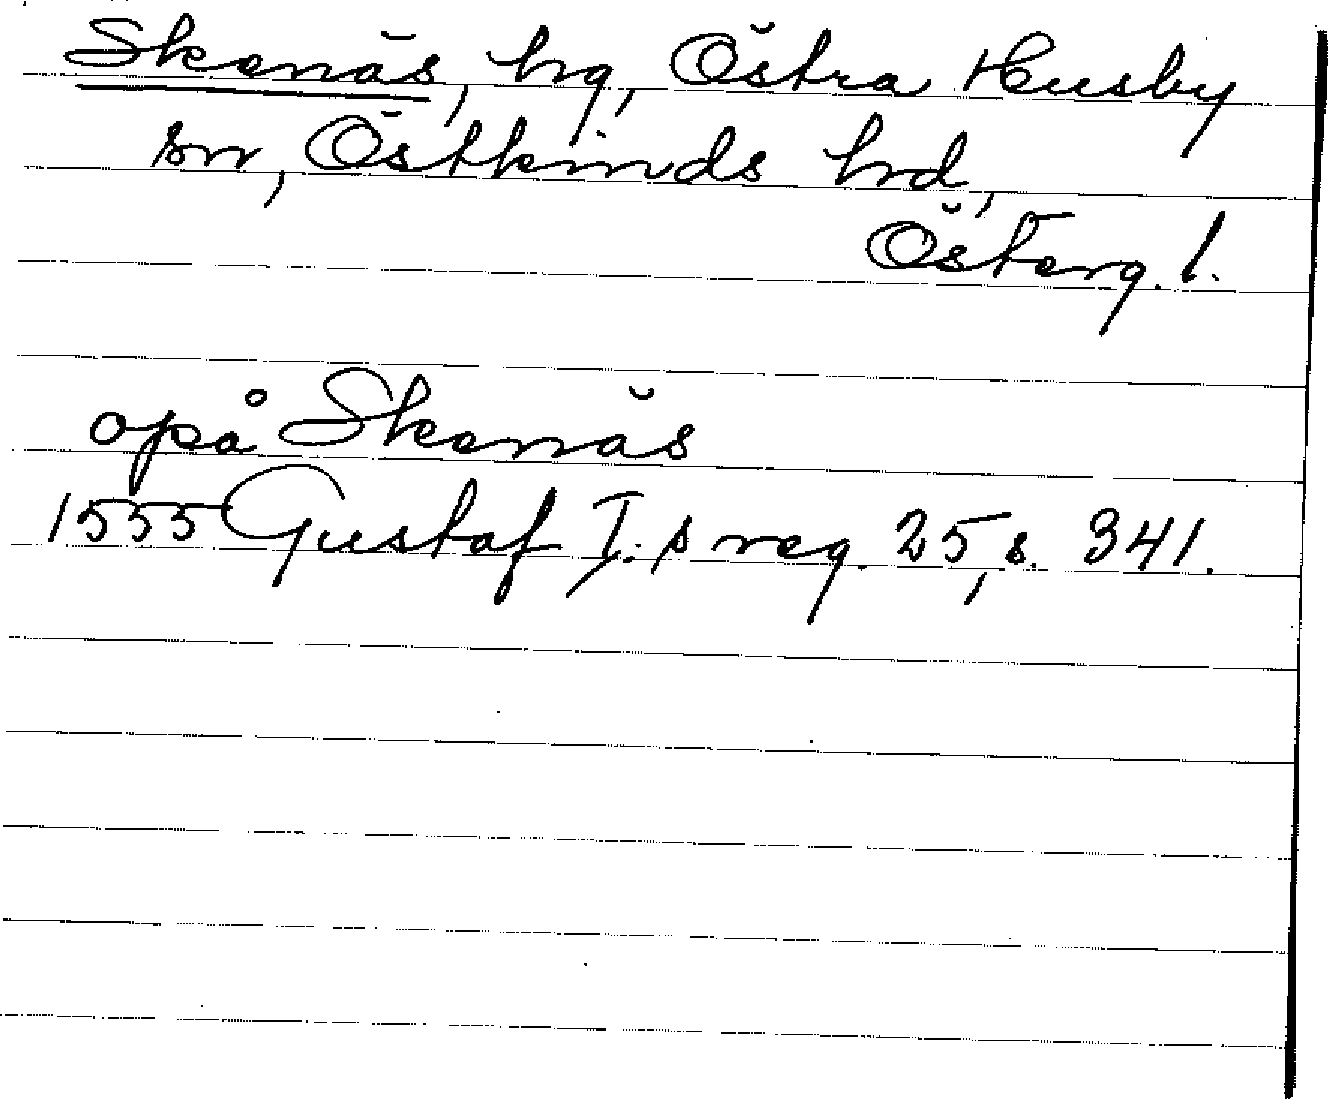 Skenäs, hg, Östra Husby
sn, Östkinds hrd,
Österg. l.
opå Skenäs
1555 Gustaf I:s reg. 25, s. 341.